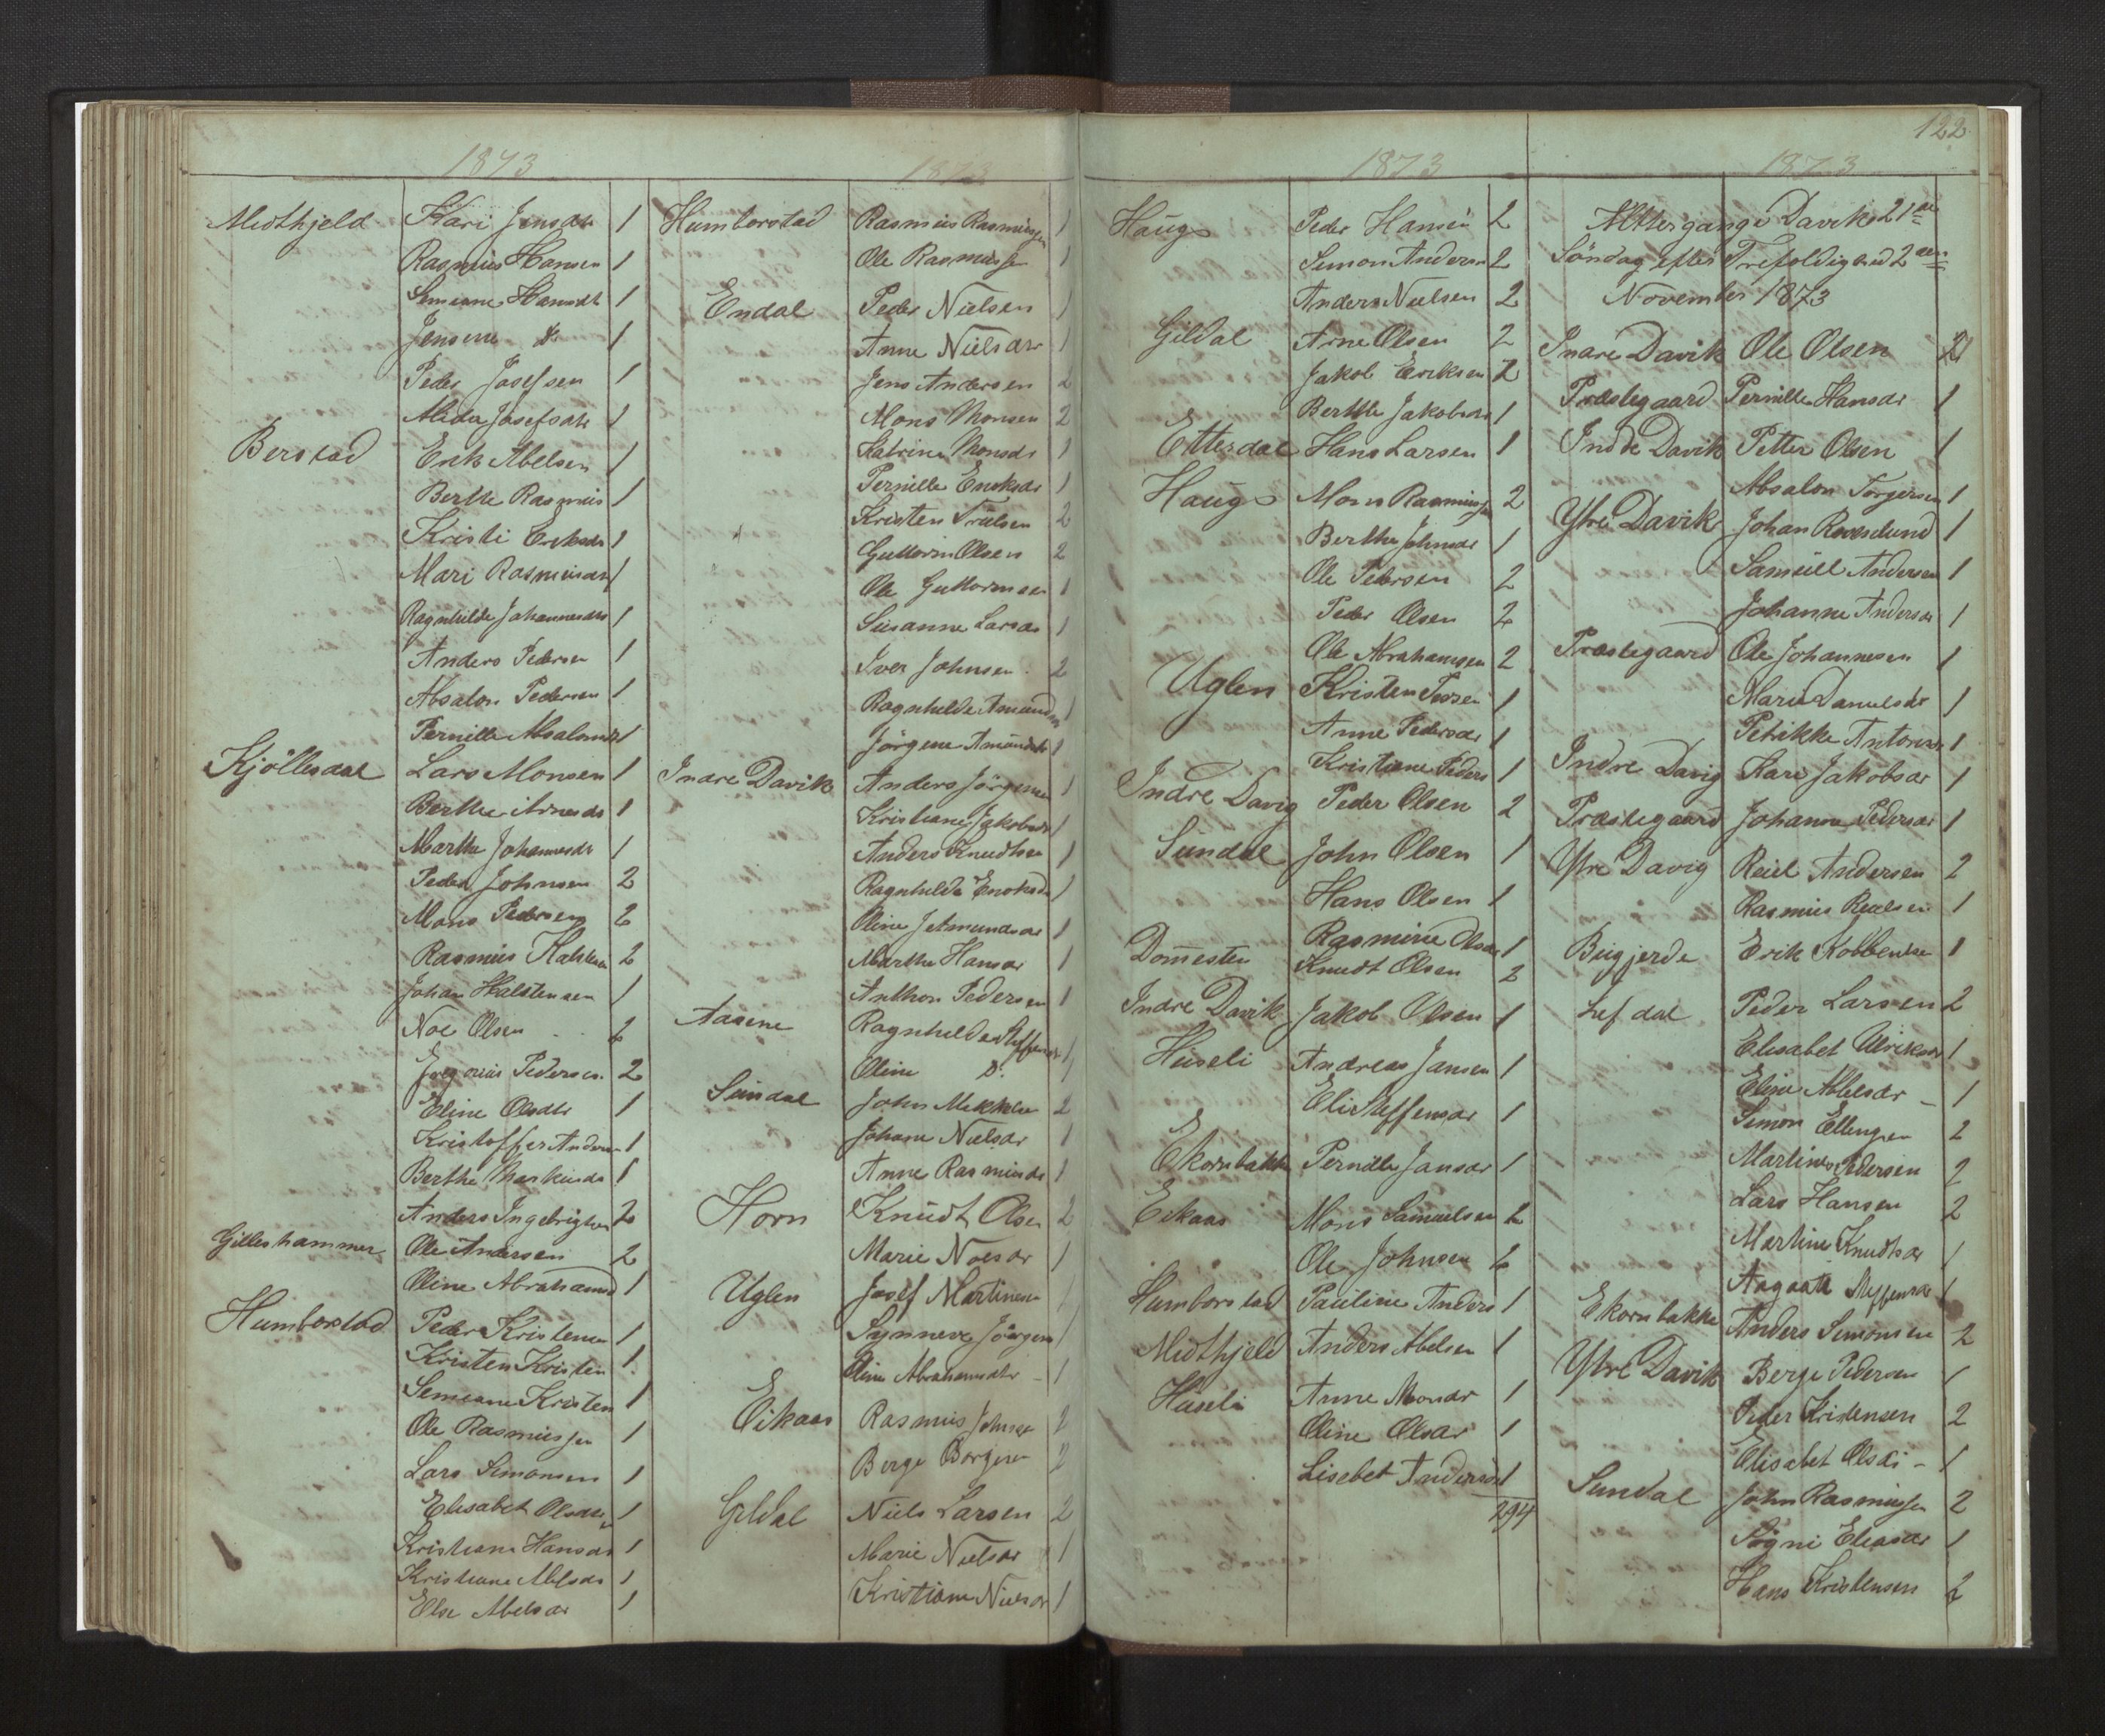 1873
Midthjeld Kari Jensdtr 1
Rasmus Hansen 1
Simeane Hansdtr 1
Jensine Do 1
Peder Josefsen 1
Alida Josefsdtr 1
Berstad Erik Abelsen 1
Berthe Rasmus 1
Kristi Eriksdr 1
Mari Rasmusdr 1
Ragnhilde Johannesdtr 1
Anders Pedersen 1
Absalon Pedersen 1
Pernille Absalonsdr 1
Kjöllesdal Lars Monsen 1
Berthe Arnesdr 1
Marthe Johannesdr 1
Peder Johnsen 2
Mons Pedersen 2
Rasmus Halstensen 2
Johan Halstensen 1
Noe Olsen 2
Gregorius Pedersen 2
Eline Olsdtr 1
Kristoffer Andersen 1
Berthe Markusdr 1
Anders Ingebrigtsen 2
Gilleshammer Ole Andersen 2
Oline Abrahamsd 1
Humborstad Peder Kristensen 1
Kristen Kristen 1
Simeane Kristen 1
Ole Rasmussen 1
Lars Simonsen 1
Elisabet Olsdtr 1
Kristiane Hansdr 1
Kristiane Abelsdr 1
Else Abelsdr 1
1873
Humborstad Rasmus Rasmussen 1
Ole Rasmussen 1
Endal Peder Nielsen 1
Anne Nielsdr 1
Jens Andersen 2
Mons Monsen 2
Katrine Monsdr 1
Pernille Enoksdr 1
Kristen Trulsen 2
Guttorm Olsen 2
Ole Guttormsen 1
Susanne Larsdr 1
Iver Johnsen 2
Ragnhilde Amundsdr 1
Jörgine Amundsdr 1
Indre Davik Anders Jörgensen 1
Kristiane Jakobsdr 1
Anders Knudtsen 1
Ragnhilde Enoksdr 1
Oline Jetmundsdr 1
Marthe Hansdr 1
Anthon Pedersen 1
Aasene Ragnhilde Steffensdr 1
Oline D. 1
Sundal John Mekkelsen 2
Johane Nielsdr 1
Anne Rasmusdr 1
Horn Knudt Olsen 2
Marie Noesdr 1
Uglen Josef Martinesen 1
Synneve Jörgens 1
Eline Abrahamsdtr 1
Eikaas Rasmus Johnsen 2
Berge Börgesen 2
Gildal Niels Larsen 2
Marie Nielsdr 1
Kristiane Nielsdr 1
122
1873
Haugs Peder Hansen 2
Simon Andersen 2
Anders Nielsen 2
Gildal Arne Olsen 2
Jakob Eriksen 2
Berthe Jakobsdr 1
Ettesdal Hans Larsen 1
Haugs Mons Rasmussen 2
Berthe Johnsdr 1
Ole Pedersen 2
Peder Olsen 2
Ole Abrahamsen 2
Uglen Kristen 1
Anne Pedersdr 1
Kristiane Peders 1
Indre Davig Peder Olsen 2
Sundal John Olsen 1
Hans Olsen 1
Rasmine Olsdr 1
Domesten Knudt Olsen 2
Indre Davik Jakob Olsen 1
Huseli Andreas Jansen 1
Eli Steffensdr 1
Ekornbakke Pernille Jansdr 1
Eikaas Mons Samuelsen 2
Ole Johnsen 2
Humborstad Pauline Anders 1
Midthjeld Anders Abelsen 1
Huseli Anne Monsdr 1
Oline Olsdr 1
Lisebet Andersdr 1
294
1873
Altergange Davik 21de
Söndag efter Trefoldighed 2den
November 1873
Indre Davik Ole Olsen 2
Præstegaard Pernille Hansdr 1
Indre Davik Petter Olsen 1
Absalon Torgersen 1
Ytre Davik Johan 1
Samuel Andersen 1
Johanne Andersdr 1
Præstegaard Ole Johannesen 1
Marie Danielsdr 1
Petrikke Antonsdr 1
Indre Davig Kari Jakobsdr 1
Præstegaard Johanne Pedersdr 1
Ytre Davig Reiel Andersen 2
Rasmus Reielsen 1
Bugjerde Erik Kolbensen 1
Lefdal Peder Larsen 2
Elisabet Ulriksdr 1
Eline Abelsdr 1
Simon Ellingsen 2
Martines Pedersen 2
Lars Hansen 2
Martine Knudtsdr 1
Aagaate Steffensdr 1
Ekornbakke Anders Simonsen 2
Ytre Davik Berge Pedersen 1
Peder Kristensen 2
Elisabet Olsdr 1
Sundal John Rasmussen 2
Sögni Eliasdr 1
Hans Kristensen 2